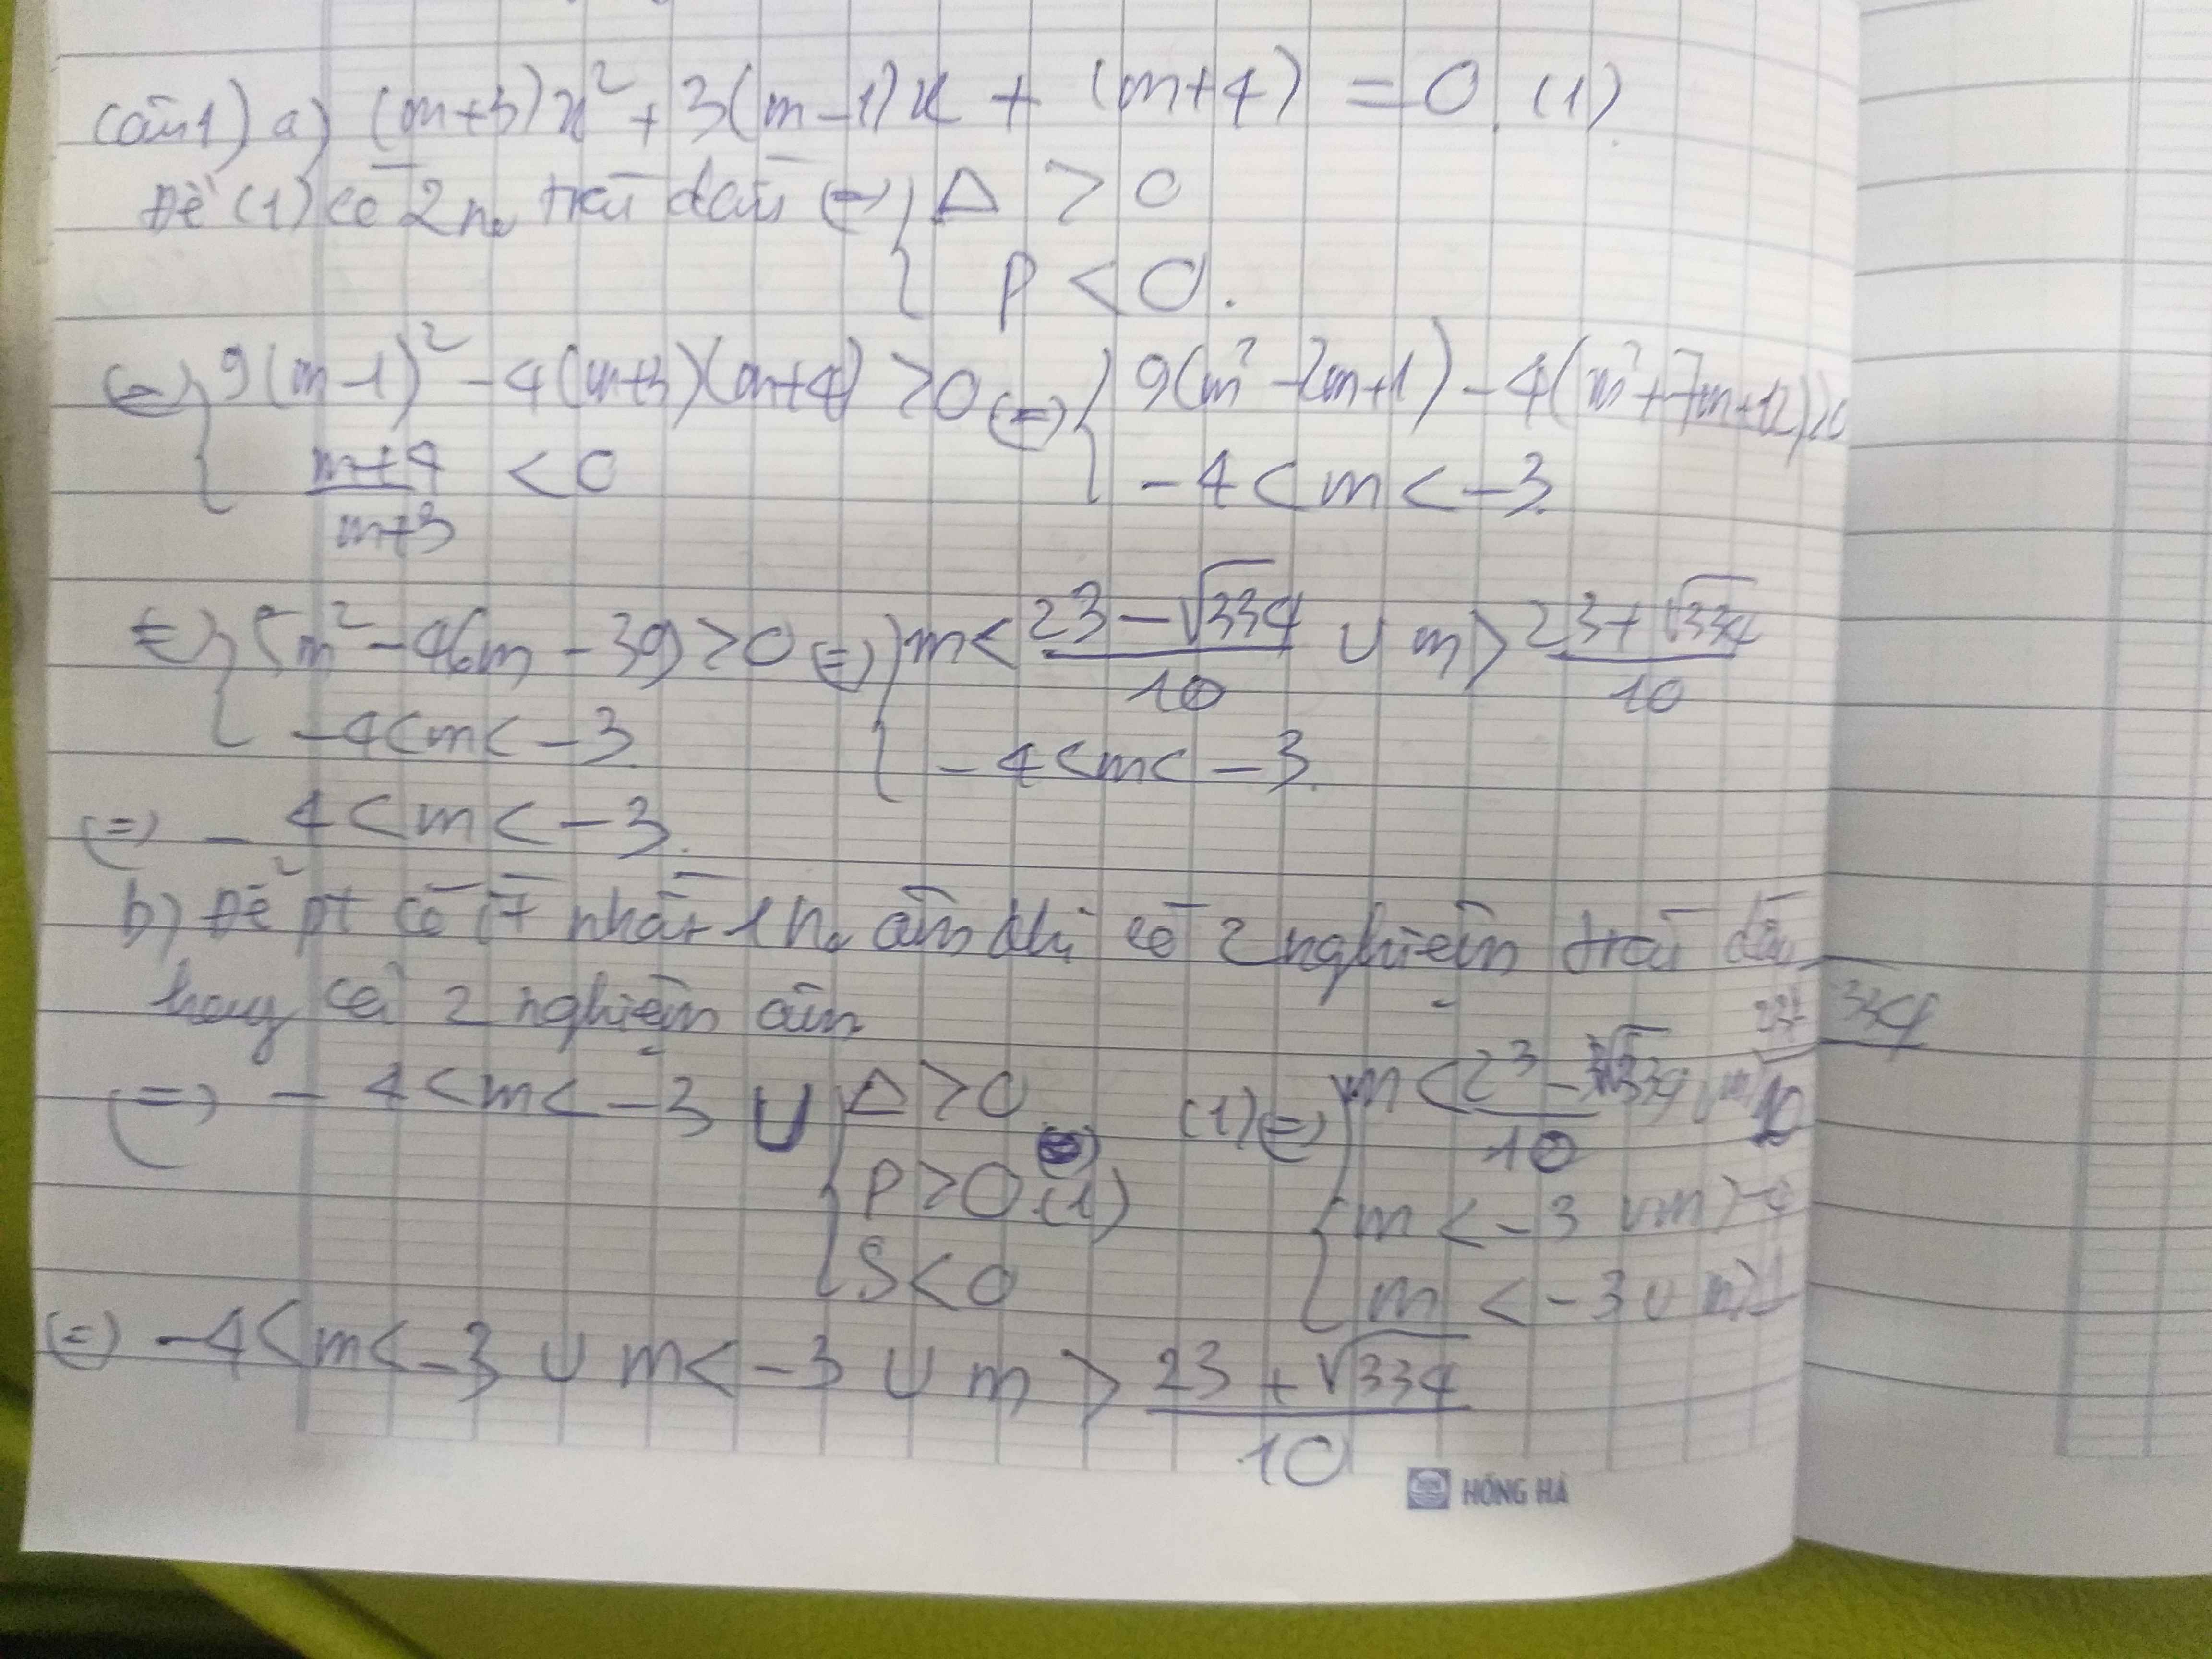 Câu 1) a) (m+3)x² + 3(m-1)x + (m+4) = 0. (1).
Để (1) có 2 n₀ trái dấu (=) { Δ > 0
P < 0.
(=) { 9(m-1)² - 4(m+3)(m+4) > 0 (=) { 9(m² - 2m+1) - 4(m²+7m+12) >0
m+4/m+3 < 0 -4 < m < -3.
(=) { 5m² - 46m - 39 > 0 (=) { m < 23 - √334/10 ∪ m > 23 + √334/10
-4<m< -3. -4 <m< -3.
(=) -4 < m < -3.
b) Để pt có ít nhất 1 n₀ âm khi có 2 nghiệm trái dấu
hay có 2 nghiệm âm
(=) -4 < m < -3 ∪ { Δ > 0 (1) (=) { m < 23 - √334/10 ∪ m
P > 0 (1) m < -3 ∪ m > -4
S < 0 m < -3 ∪ m > 1
(=) -4 < m < -3 ∪ m < -3 ∪ m > 23 + √334/10
HỒNG HÀ